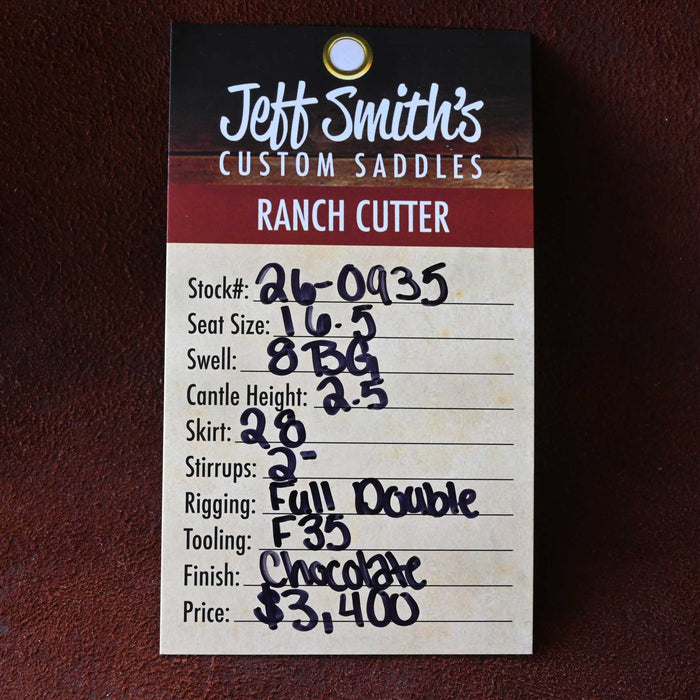 Jeff Smith's
CUSTOM SADDLES
RANCH CUTTER
Stock#: 26-0935
Seat Size: 16.5
Swell: 8 BG
Cantle Height: 2.5
Skirt: 28
Stirrups: 2-
Rigging: Full Double
Tooling: F35
Finish: Chocolate
Price: $3,400